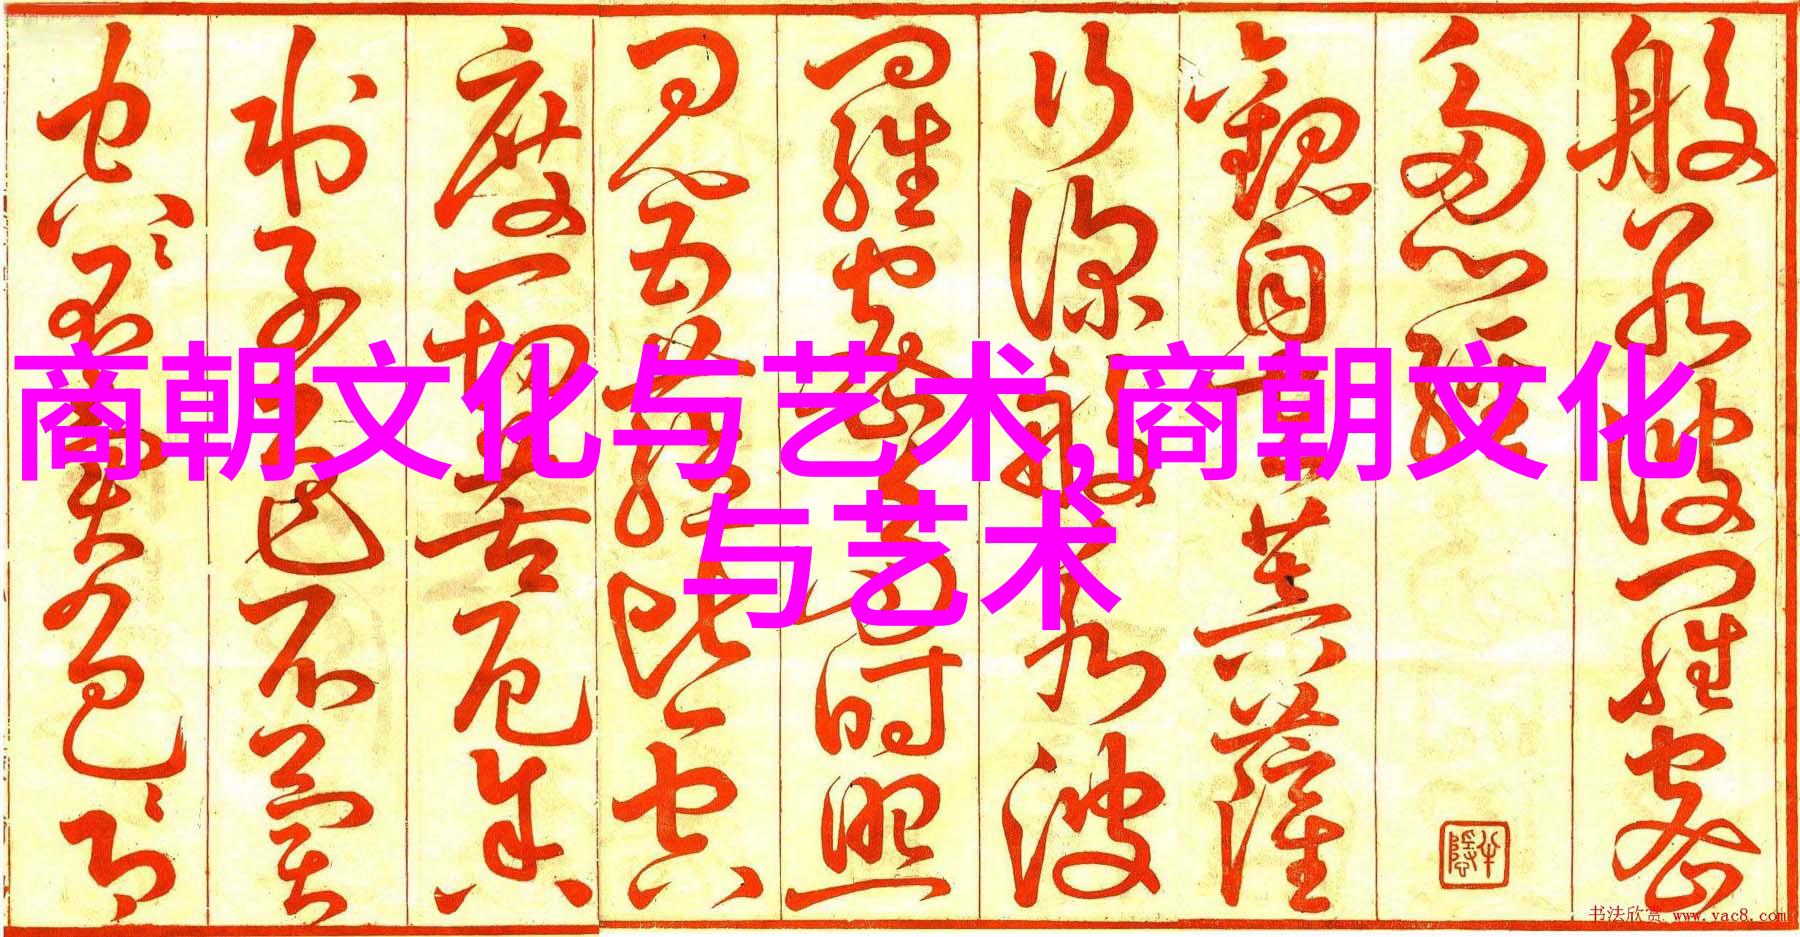 商朝文化与艺术,商朝文化
与艺术
般若波羅蜜
多心經
觀自在菩薩
行深般若波
羅蜜多時照
見五蘊皆空
度一切苦厄舍
利子色不異
空〻不異色〻即
书法欣赏 www.yac8.com